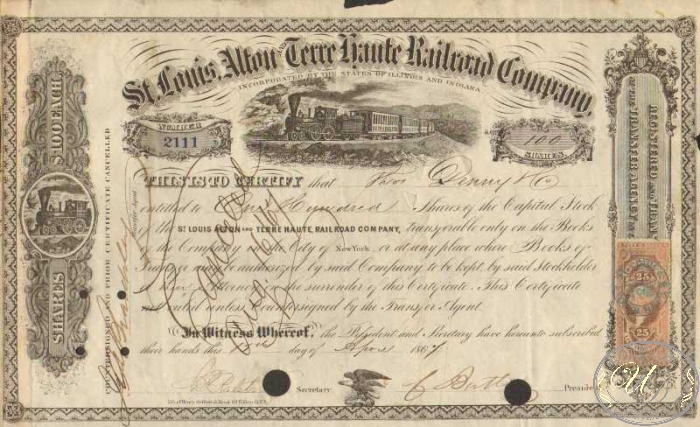 St. Louis, Alton AND Terre Haute Railroad Company,
INCORPORATED BY THE STATES OF ILLINOIS AND INDIANA
NUMBER
2111
100
SHARES
THIS IS TO CERTIFY that Thos Denny & Co
entitled to One Hundred Shares of the Capital Stock
of the ST LOUIS ALTON AND TERRE HAUTE RAILROAD COMPANY, transferable only on the Books
of the Company in the City of New York, or at any place where Books of
Transfer may be authorized by said Company to be kept, by said Stockholder
or Attorney on the surrender of this Certificate. This Certificate
not valid unless countersigned by the Transfer Agent.
In Witness Whereof, the President and Secretary have hereunto subscribed
their hands this day of April 1867
Secretary
C Butler President
SHARES $100 EACH
COUNTERSIGNED AND PRIOR CERTIFICATE CANCELLED
Transfer Agent
REGISTERED
TRANSFER AGENCY
25
25
U